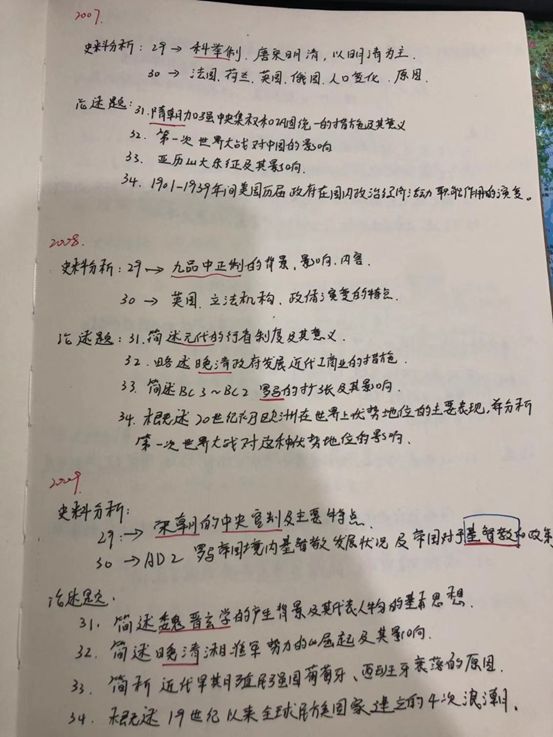 2007.
史料分析：29 → 科举制．唐宋明清，以明清为主．
30 → 法国．荷兰．英国．俄国．人口变化．原因．
论述题：31.隋朝加强中央集权和巩固统一的措施及其意义
32. 第一次世界大战对中国的影响
33. 亚历山大东征及其影响．
34. 1901-1939年间美国历届政府在国内政治经济活动中职能作用的演变。
2008.
史料分析：29 → 九品中正制的背景，影响．内容．
30 → 英国．立法机构．政情演变的特点．
论述题：31.简述元代的行省制度及其意义．
32.略述晚清政府发展近代工商业的措施．
33. 简述BC3~BC2 罗马的扩张及其影响．
34. 概述20世纪初欧洲在世界上优势地位的主要表现，并分析
第一次世界大战对这种优势地位的影响．
2009
史料分析：
29：→ 宋朝的中央官制及主要特点．
30 → AD2 罗马帝国境内基督教发展状况及帝国对于基督教的政策
论述题．
31. 简述魏晋玄学的产生背景及其代表人物的基本思想．
32. 简述晚清湘淮军努力的崛起及其影响．
33. 简析近代早其月殖民强国葡萄牙、西班牙衰落的原因．
34. 概述19世纪以来全球民族国家建立的4次浪潮．